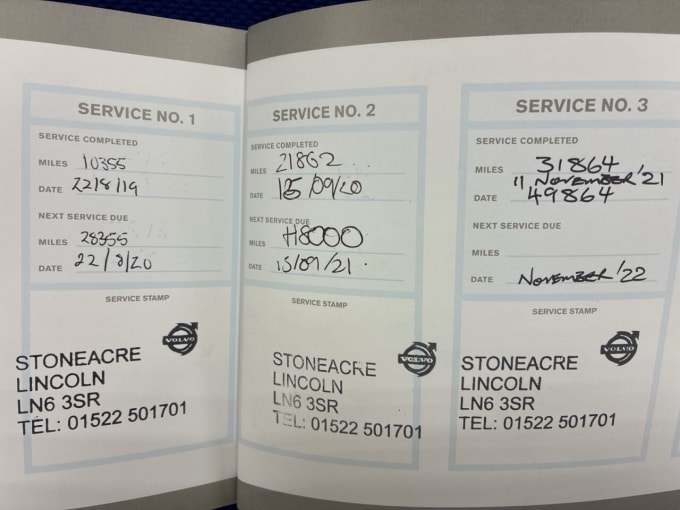 SERVICE NO. 1
SERVICE COMPLETED
MILES 10355
DATE 22/8/19
NEXT SERVICE DUE
MILES 28355
DATE 22/8/20
SERVICE STAMP
VOLVO
STONEACRE
LINCOLN
LN6 3SR
TEL: 01522 501701
SERVICE NO. 2
SERVICE COMPLETED
MILES 21862
DATE 15/09/20
NEXT SERVICE DUE
MILES H8000
DATE 15/09/21.
SERVICE STAMP
VOLVO
STONEACRE
LINCOLN
LN6 3SR
TEL: 01522 501701
SERVICE NO. 3
SERVICE COMPLETED
MILES 31864
11 NOVEMBER '21
DATE 49864
NEXT SERVICE DUE
MILES
DATE NOVEMBER '22
SERVICE STAMP
VOLVO
STONEACRE
LINCOLN
LN6 3SR
TEL: 01522 501701